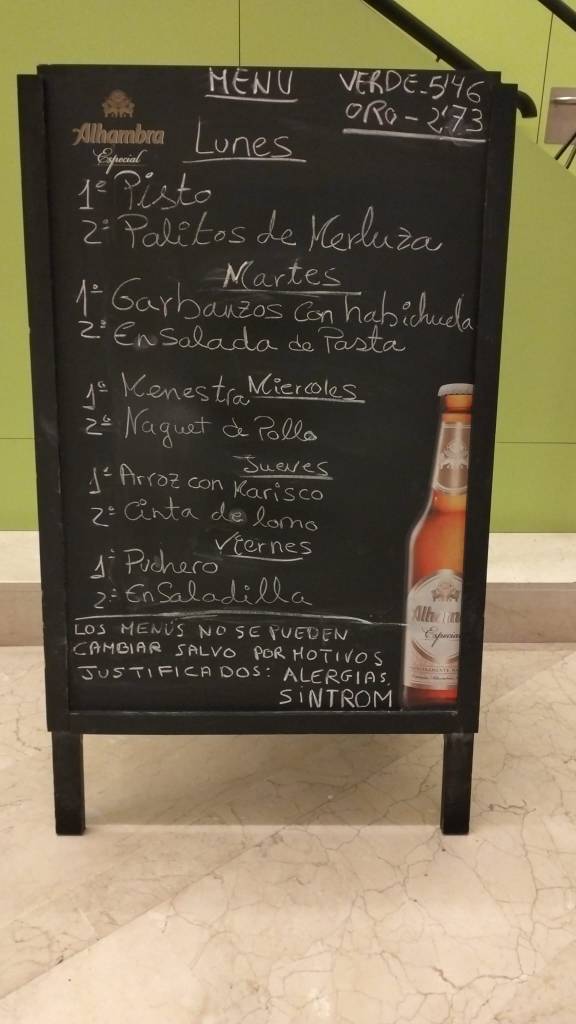 MENU VERDE-5'46
ORO-2'73
Alhambra
Especial
Lunes
1º Pisto
2º Palitos de Merluza
Martes
1º Garbanzos con habichuela
2º Ensalada de Pasta
Miercoles
1º Menestra
2º Naguet de Pollo
Jueves
1º Arroz con Marisco
2º Cinta de lomo
Viernes
1º Puchero
2º Ensaladilla
LOS MENÚS NO SE PUEDEN
CAMBIAR SALVO POR MOTIVOS
JUSTIFICADOS: ALERGIAS.
SINTROM
Especial